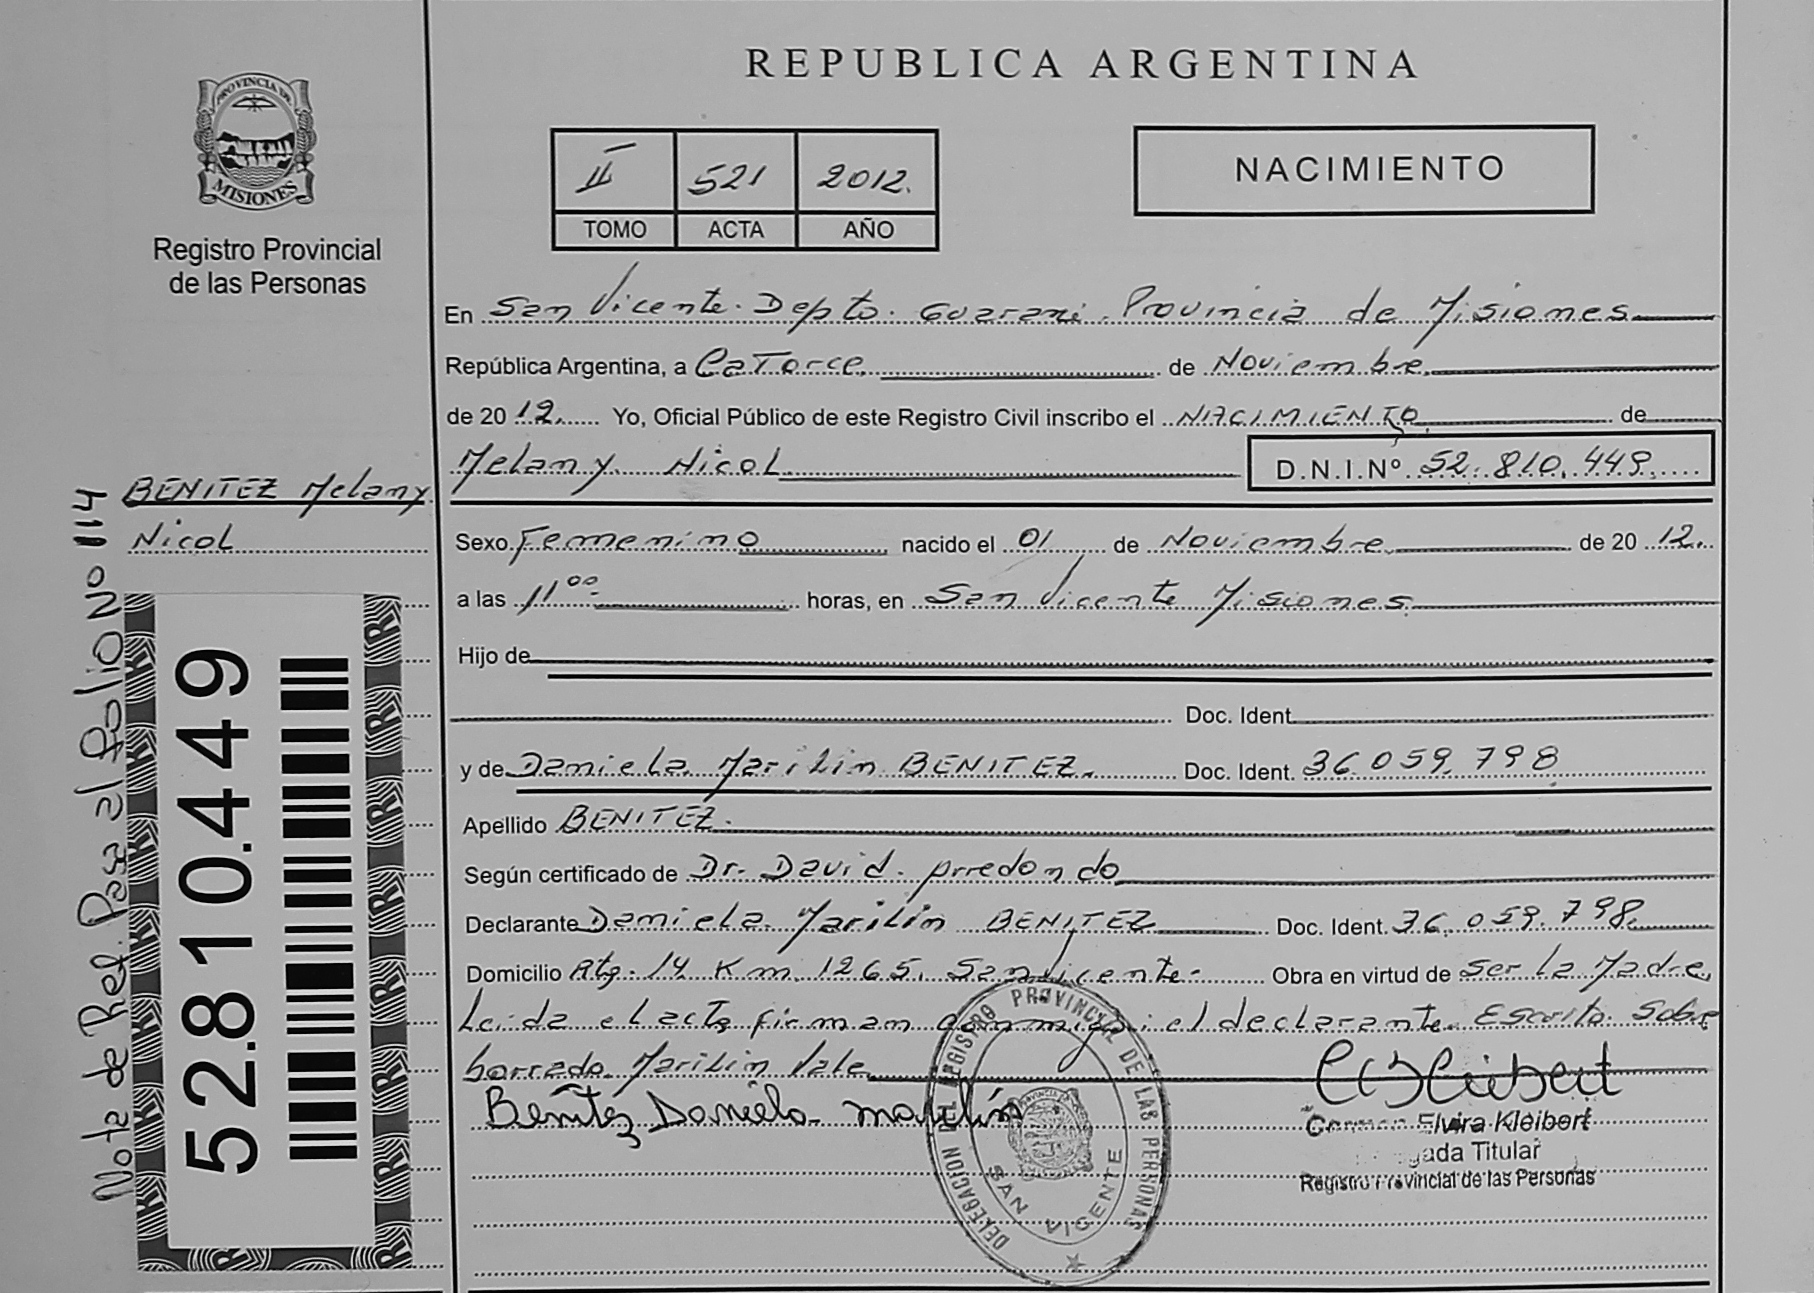 REPUBLICA ARGENTINA
PROVINCIA DE
MISIONES
Registro Provincial
de las Personas
II 521 2012.
TOMO ACTA AÑO
NACIMIENTO
En San Vicente. Depto. Guarani. Provincia de Misiones
República Argentina, a Catorce de Noviembre
de 20 12. Yo, Oficial Público de este Registro Civil inscribo el NACIMIENTO de
Melany Nicol D.N.I.Nº 52.810.449
BENITEZ Melany
Nicol
Sexo Femenino nacido el 01 de Noviembre de 20 12.
a las 11 00 horas, en San Vicente Misiones
Hijo de
Doc. Ident.
y de Daniela Marilin BENITEZ. Doc. Ident. 36.059.798
Apellido BENITEZ.
Según certificado de Dr. David. Arredondo
Declarante Daniela Marilin BENITEZ Doc. Ident. 36.059.798
Domicilio Rta. 14 Km 1265. San Vicente- Obra en virtud de Ser la Madre,
Leida el acta firman conmigo el declarante. Escrito Sobre
borrado Marilin Vale
Benitez Daniela marilin
Elvira Kleibert
Titular
Registro Provincial de las Personas
DELEGACION DEL REGISTRO PROVINCIAL DE LAS PERSONAS
SAN VICENTE
52.810.449
Nota de Ref. Pasa al folio No 114